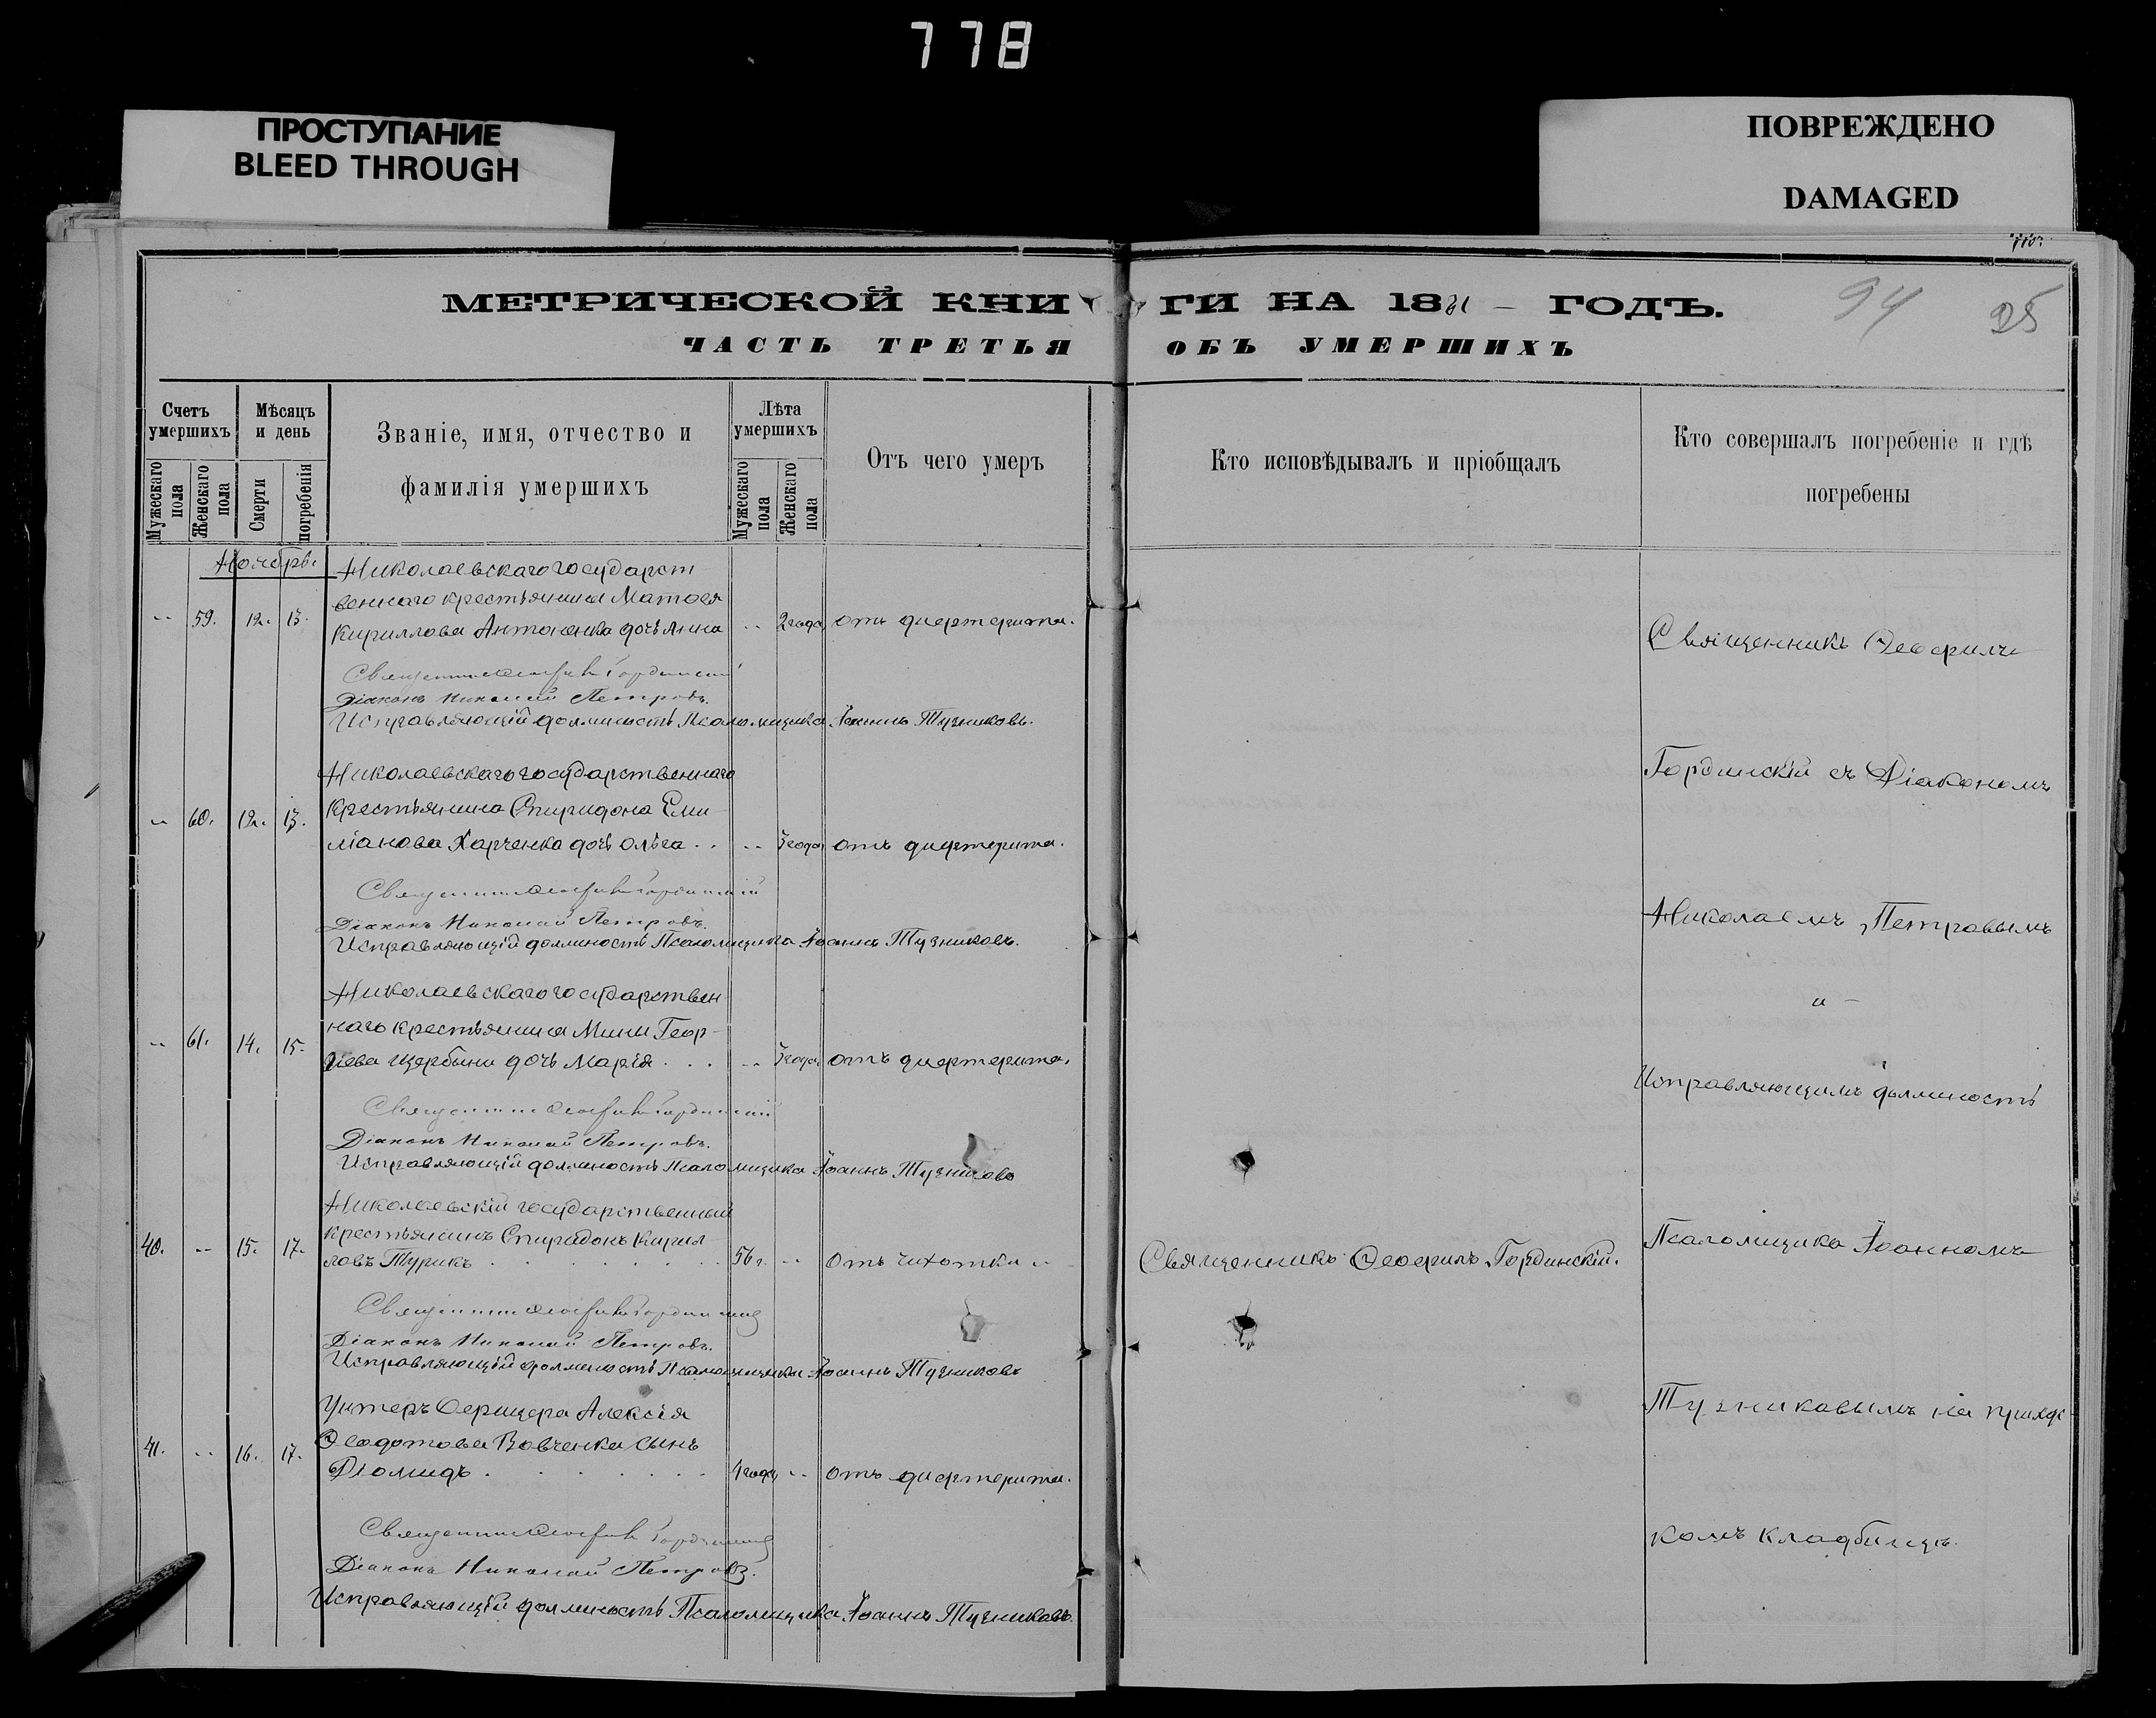 778
ПРОСТУПАНИЕ
BLEED THROUGH
ПОВРЕЖДЕНО
DAMAGED
МЕТРИЧЕСКОЙ КНИГИ НА 1881 – ГОДЪ.
94 95
ЧАСТЬ ТРЕТЬЯ ОБЪ УМЕРШИХЪ
Счетъ умершихъ
Мужескаго пола
Женскаго пола
Мѣсяцъ и день
Смерти
погребенія
Званіе, имя, отчество и
фамилія умершихъ
Лѣта умершихъ
Мужескаго пола
Женскаго пола
Отъ чего умеръ
Кто исповѣдывалъ и пріобщалъ
Кто совершалъ погребеніе и гдѣ
погребены
Ноябрь.
Николаевскаго государст
веннаго крестьянина Матѳея
-- 59. 12. 13. Кириллова Антоненка дочь Анна -- 2 года отъ дифтерита.
Священникъ Ѳеофилъ Гординскій
Діаконъ Николай Петровъ.
Исправляющій должность Псаломщика Іоаннъ Тузниковъ.
Николаевскаго государственнаго
-- 60. 12. 13. крестьянина Спиридона Еми
ліанова Харченка дочь Ольга . . -- 3 года отъ дифтерита.
Священникъ Ѳеофилъ Гординскій
Діаконъ Николай Петровъ.
Исправляющій должность Псаломщика Іоаннъ Тузниковъ.
Николаевскаго государствен
-- 61. 14. 15. наго крестьянина Мины Геор-
гіева Щербины дочь Марія . . . -- 3 года отъ дифтерита.
Священникъ Ѳеофилъ Гординскій
Діаконъ Николай Петровъ.
Исправляющій должность Псаломщика Іоаннъ Тузниковъ
Николаевскій государственный
40. -- 15. 17. крестьянинъ Спиридонъ Кирил-
ловъ Турикъ . . . . . . . 56 г. -- Отъ чихотки -- Священникъ Ѳеофилъ Гординскій.
Священникъ Ѳеофилъ Гординскій
Діаконъ Николай Петровъ.
Исправляющій должность Псаломщика Іоаннъ Тузниковъ
Унтеръ Офицера Алексія
41. -- 16. 17. Ѳеодотова Вовченка сынъ
Діомидъ . . . . . . . 4 года -- отъ дифтерита.
Священникъ Ѳеофилъ Гординскій
Діаконъ Николай Петровъ.
Исправляющій должность Псаломщика Іоаннъ Тузниковъ.
Священникъ Ѳеофилъ
Гординскій съ Діакономъ
Николаемъ Петровымъ
и –
Исправляющимъ должность
Псаломщика Іоанномъ
Тузниковымъ на приход
комъ кладбищѣ.